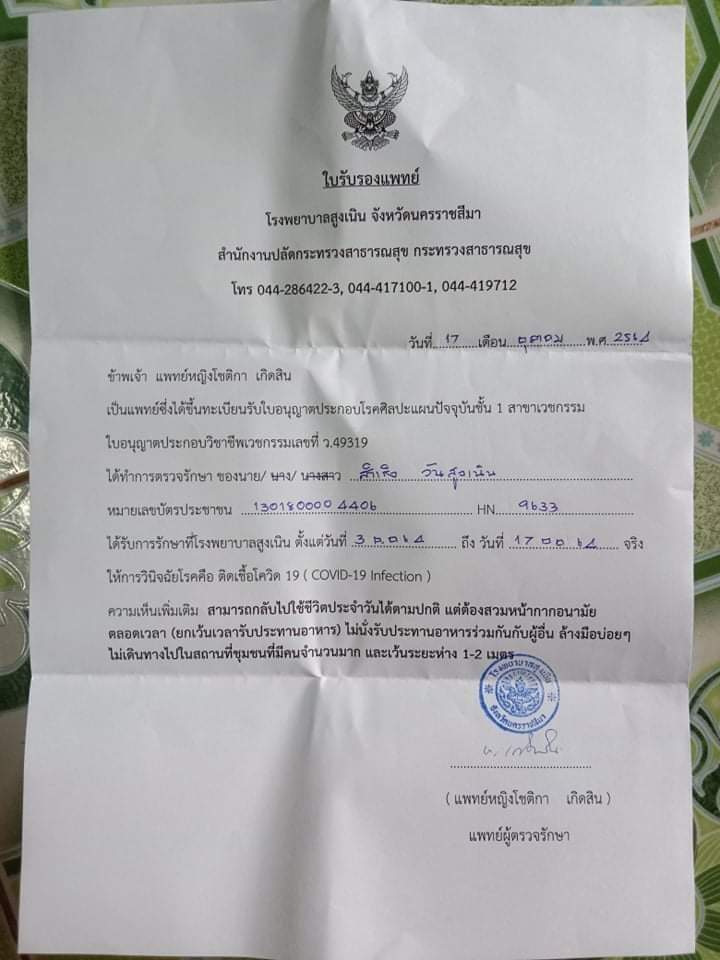 ใบรับรองแพทย์
โรงพยาบาลสูงเนิน จังหวัดนครราชสีมา
สำนักงานปลัดกระทรวงสาธารณสุข กระทรวงสาธารณสุข
โทร 044-286422-3, 044-417100-1, 044-419712
วันที่ 17 เดือน ตุลาคม พ.ศ 2564
ข้าพเจ้า แพทย์หญิงโชติกา เกิดสิน
เป็นแพทย์ซึ่งได้ขึ้นทะเบียนรับใบอนุญาตประกอบโรคศิลปะแผนปัจจุบันชั้น 1 สาขาเวชกรรม
ใบอนุญาตประกอบวิชาชีพเวชกรรมเลขที่ ว.49319
ได้ทำการตรวจรักษา ของนาย/ นาง/ นางสาว วันสูงเนิน
หมายเลขบัตรประชาชน 130180000 4406 HN 9633
ได้รับการรักษาที่โรงพยาบาลสูงเนิน ตั้งแต่วันที่ 3 ต.ค 64 ถึง วันที่ 17 ตค 64 จริง
ให้การวินิจฉัยโรคคือ ติดเชื้อโควิด 19 ( COVID-19 Infection )
ความเห็นเพิ่มเติม สามารถกลับไปใช้ชีวิตประจำวันได้ตามปกติ แต่ต้องสวมหน้ากากอนามัย
ตลอดเวลา (ยกเว้นเวลารับประทานอาหาร) ไม่นั่งรับประทานอาหารร่วมกันกับผู้อื่น ล้างมือบ่อยๆ
ไม่เดินทางไปในสถานที่ชุมชนที่มีคนจำนวนมาก และเว้นระยะห่าง 1-2 เมตร
โรงพยาบาลสูงเนิน
จังหวัดนครราชสีมา
( แพทย์หญิงโชติกา เกิดสิน )
แพทย์ผู้ตรวจรักษา